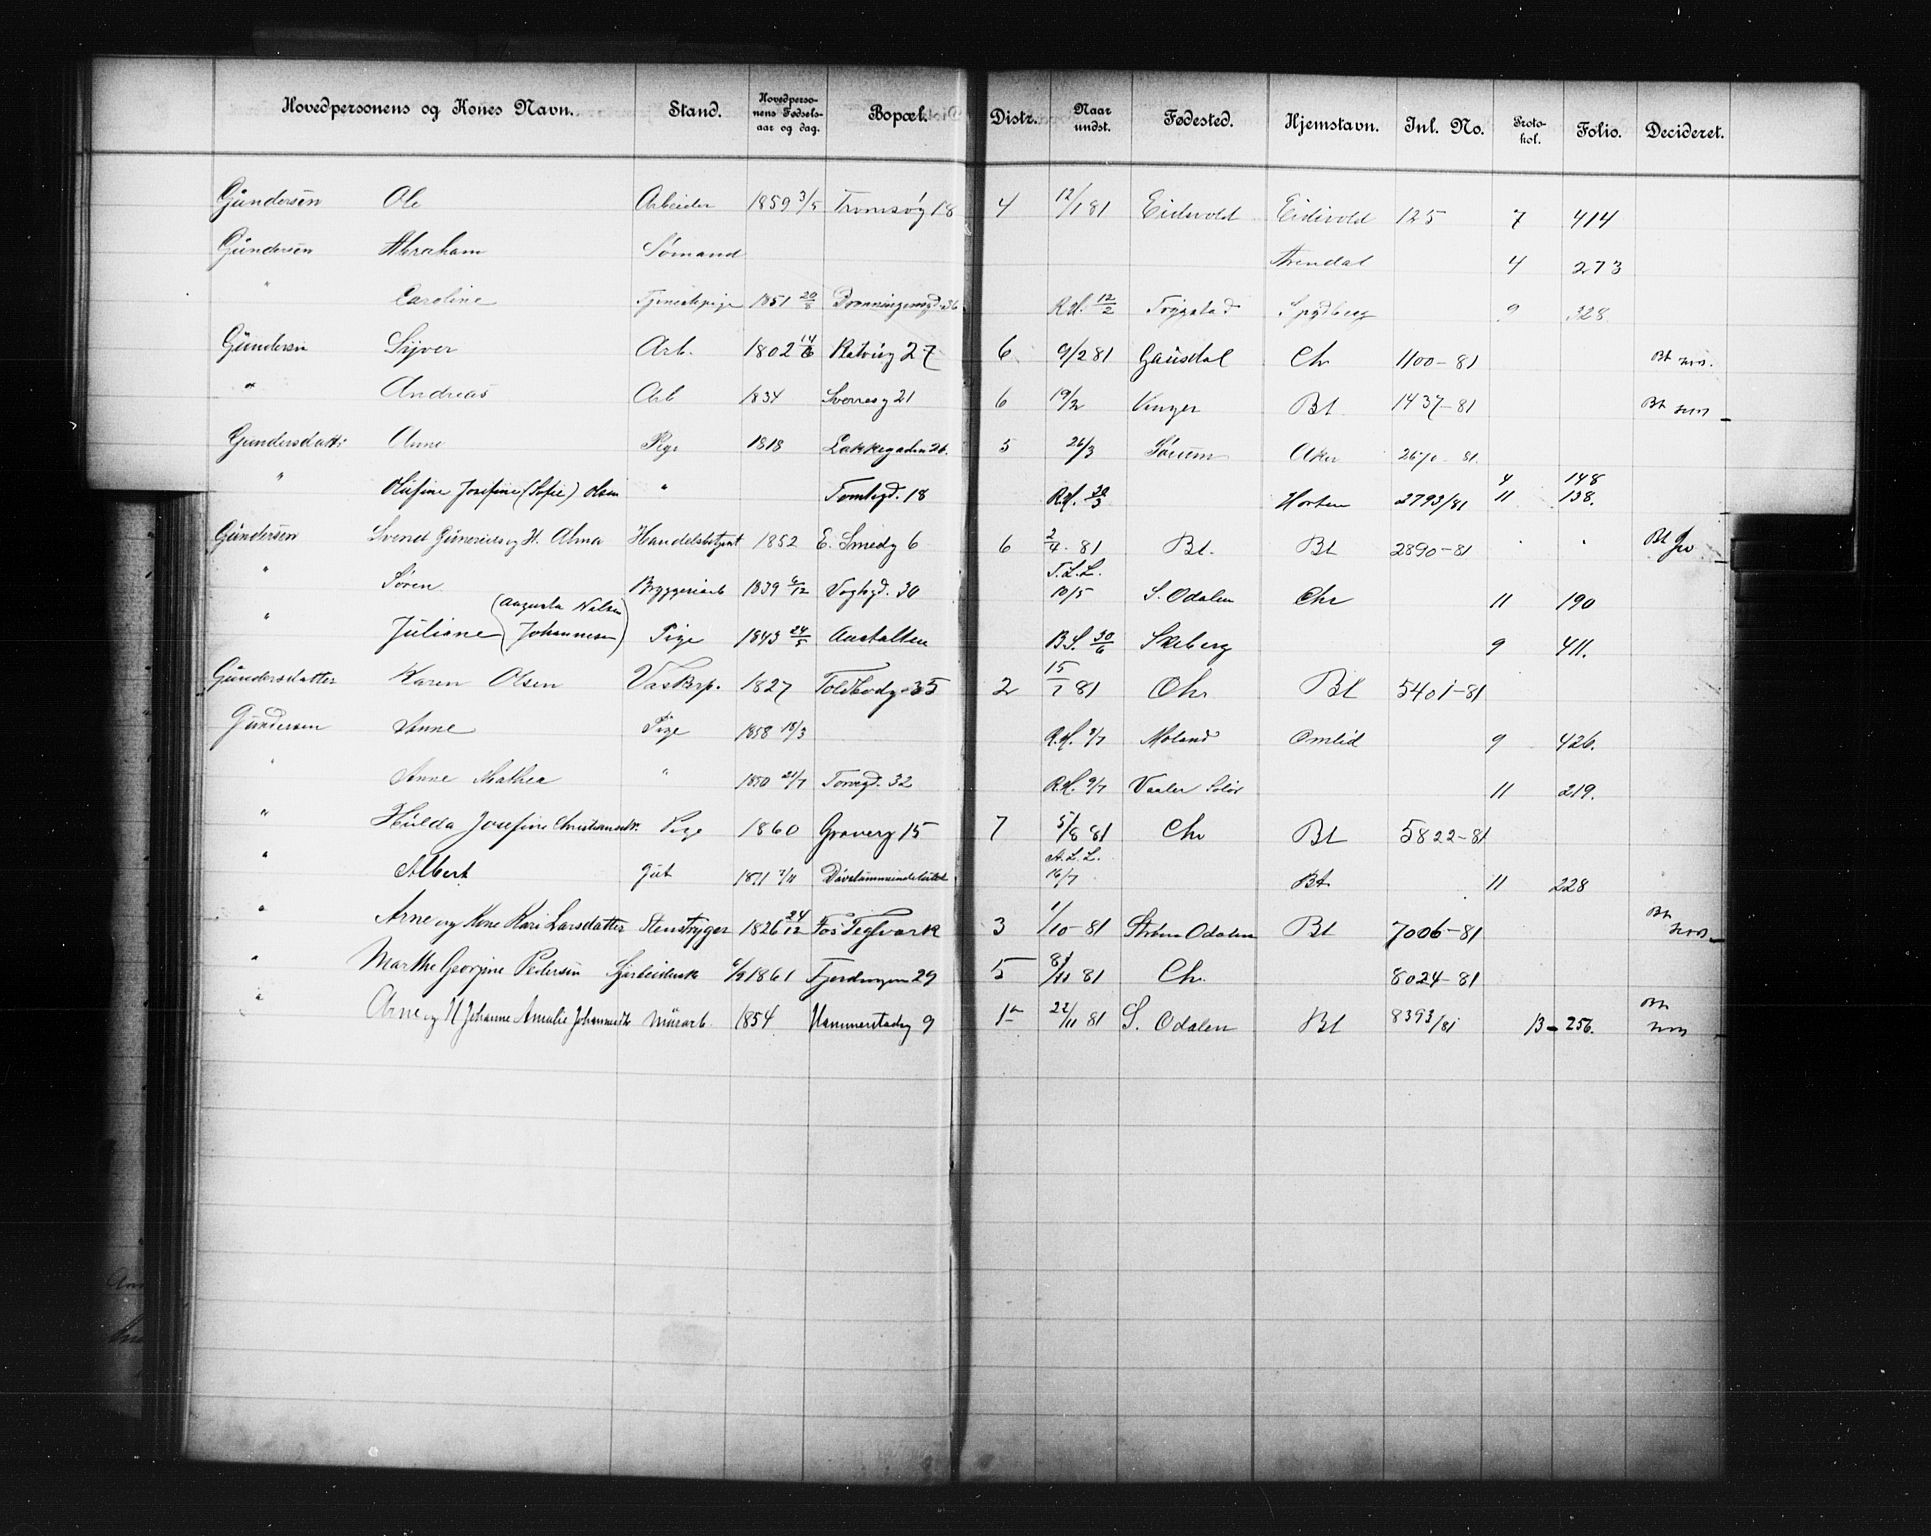 Hovedpersonens og Kones Navn. Stand. Hovedpersonens Fødselsaar og dag. Bopæl. Distr. Naar undst. Fødested. Hjemstavn. Inl. No. Protokol. Folio. Decideret.
Gundersen Ole Arbeider 1859 3/5 Tromsøg 18 4 12/1 81 Eidsvold Eidsvold 125 7 414
Gundersen Abraham Sømand Arendal 4 273
" Caroline Tjenestepige 1851 20/8 Dronningensgd. 36 R.H. 12/2 Trygstad Spydberg 9 328
Gundersen Syver Arb. 1802 14/6 27 6 9/2 81 Gausdal Chr 1100-81 Bt
" Andreas Arb 1834 Sverresg 21 6 19/2 Vinger Bt 1437-81 Bt
Gundersdatter Anne Pige 1818 Lakkegaden 26. 5 26/3 Sørum Aker 81
" Olufine Josefine (Sofie) Olsen " Tomtegd. 18 R.H. 30/3 Horten 2793/81 4 11 148 138.
Gundersen Svend Gunerius og H. Alma Handelsbetjent 1852 E. Smedg 6 6 2/4. 81 Bt. Bt 2890-81 " " Bt
" Søren Bryggeriarb 1839 6/12 Vogtsgd. 30 T.L.L. 10/5 S. Odalen Chr 11 190
" Juliane (Augusta Nilsen Johannesen) Pige 1843 24/5 Anstalten B.S. 30/6 Skiberg 9 411.
Gundersdatter Karen Olsen Vaskerp. 1827 Toldbodg 35 2 15/7 81 Chr. Bt 5401-81
Gundersen Anne Pige 1858 18/3 R.H. 9/7 Moland Omlid 9 426.
" Anne Mathea " 1850 21/7 Torvegd. 32 R.H. 9/7 Vaaler Solør 11 219.
" Hulda Josefine Christiansdtr. Pige 1860 Graverg 15 7 5/8 81 Chr Bt 5822-81
" Albert Gut 1871 7/11 Døvstummeinstitutet A.L.L. 16/7 Bt 11 228
" Arne og Kone Kari Larsdatter Stenbryger 1826 24/12 Fos Teglværk 3 1/10-81 Strøm Odalen Bt 7006-81 Bt
" Marthe Georgine Pedersen 6/9 1861 Fjerdingen 29 5 8/11 81 Chr. 8024-81
" Arne og H Johanne Amalie Johannesdtr Murarb 1854 Hammerstadg 9 1a 22/11 81 S. Odalen Bt 8393/81 13 - 256. Bt